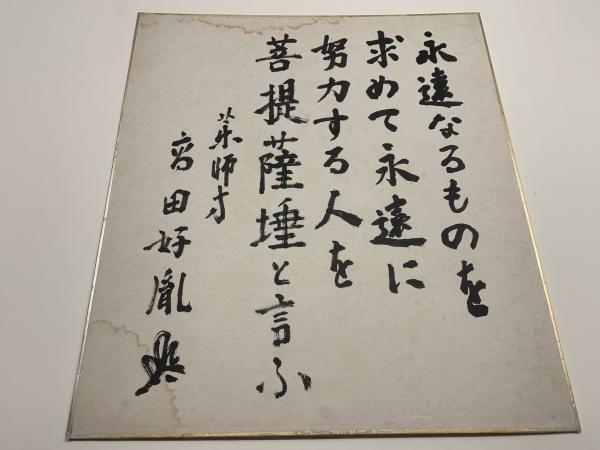 永遠なるものを
求めて永遠に
努力する人を
菩提薩埵と言ふ
薬師寺
高田好胤